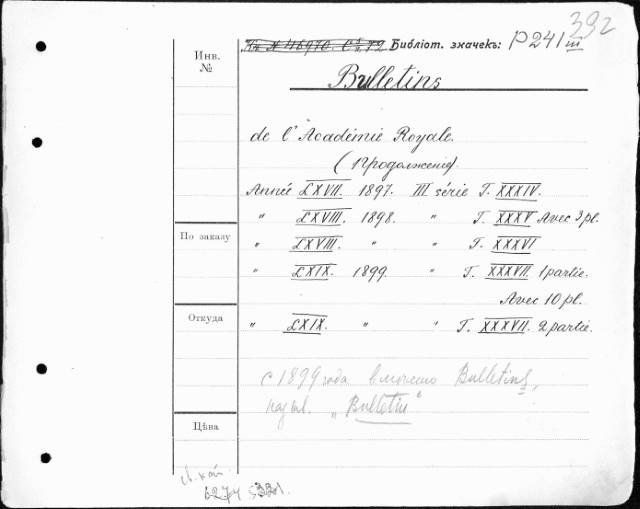 392
Библіот. значекъ: P 241/III
Инв.
№
Bulletins
de l'Académie Royale.
(Продолженіе).
Année LXVII. 1897. III série T. XXXIV.
" LXVIII. 1898. " T. XXXV Avec 3 pl.
По заказу
" LXVIII. " " T. XXXVI
" LXIX. 1899. " T. XXXVII. 1 partie.
Avec 10 pl.
Откуда
" LXIX. " " T. XXXVII. 2 partie.
с 1899 года вместо Bulletins,
назыв. „Bulletin"
Цѣна